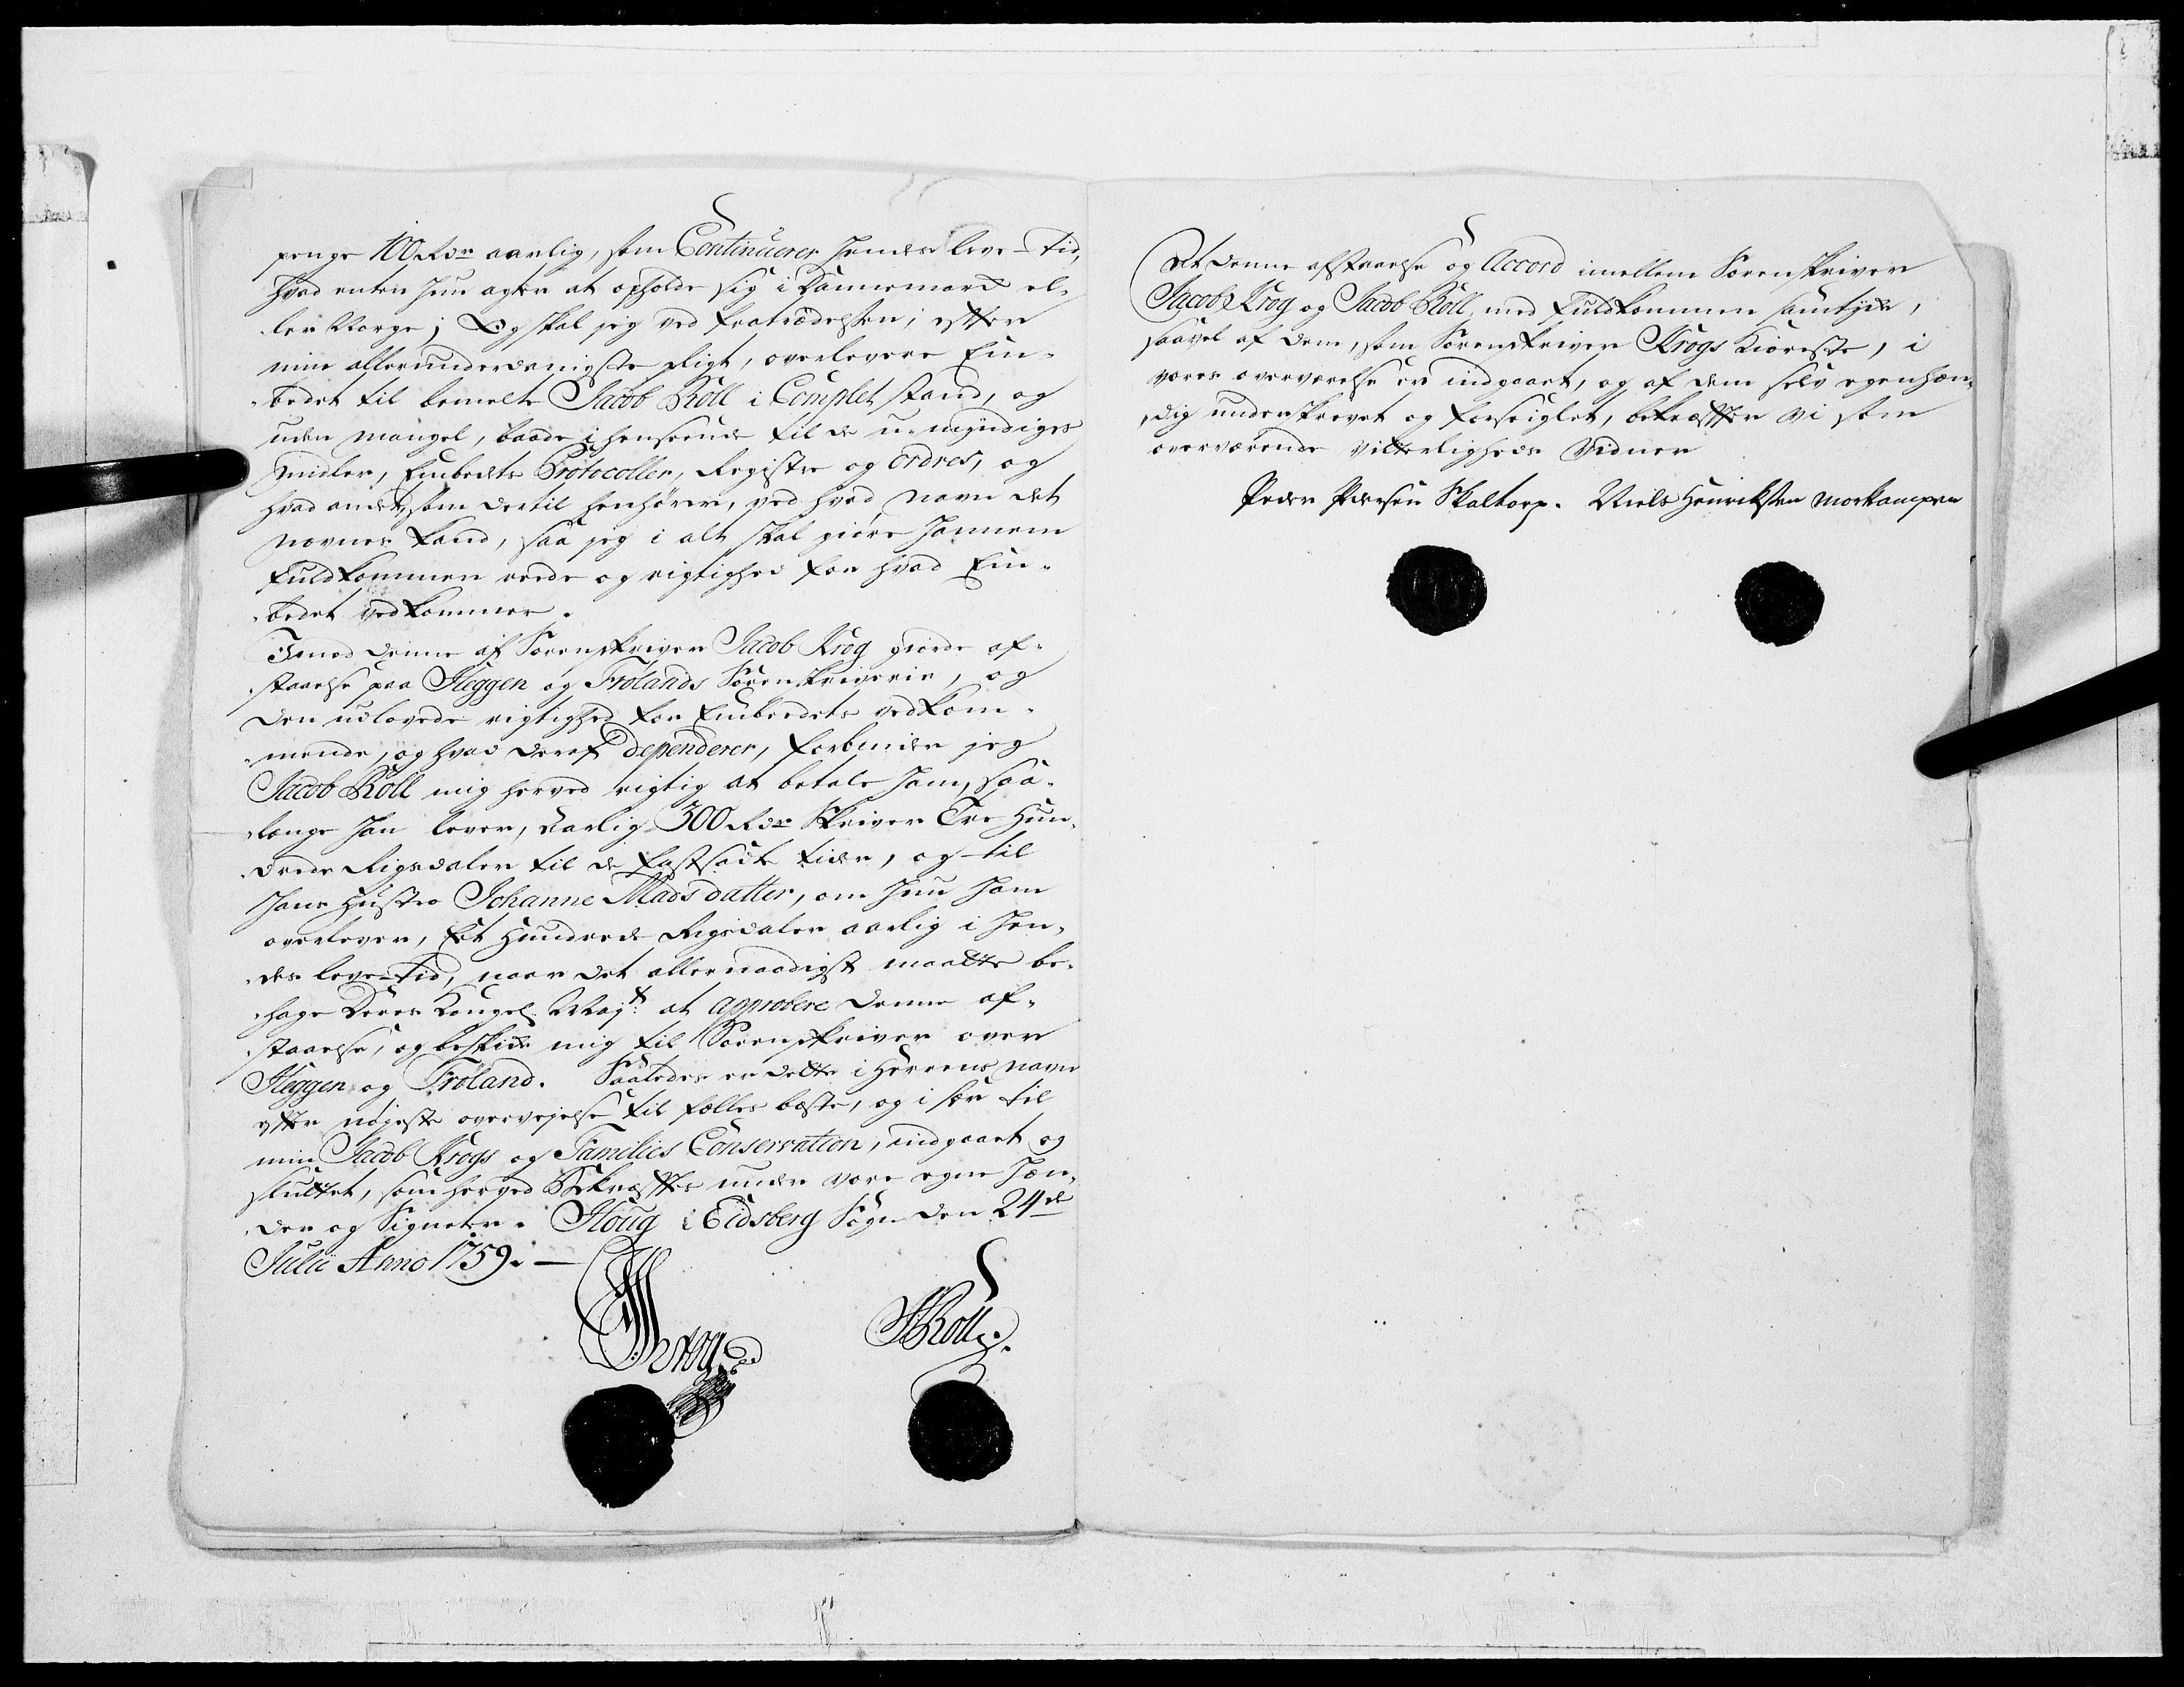 penge 100 Rdr aarlig, som Continuerer hendes leve-tid,
hvad enten hun agter at opholde sig i Dannemark el-
ler Norge; Og skal jeg ved fratrædelsen, efter
min allerunderdanigste Pligt, overlevere Em-
bedet til bemelte Jacob Röll i Complet stand, og
uden mangel, baade i henseende til de u-myndiges
Midler, Embedets Protocoller, Registre og Ordres, og
hvad andet som dertil henhører, ved hvad Navn det
nævnes kand, saa jeg i alt skal giøre hannem
fuldkommen reede og rigtighed for hvad Em-
bedet vedkommer.
Imod denne af Sorenskriver Jacob Krog giorde af-
staaelse paa Heggen og Frölands Sorenskriverie, og
den udlovede rigtighed for Embedets vedkom-
mende, og hvad deraf dependerer, forbinder jeg
Jacob Röll mig herved rigtig at betale ham, saa-
længe han lever, aarlig 300 Rdr Skriver Tre Hun-
drede Rigsdaler til de fastsadte tider, og til
hans hustro Johanne Madsdatter, om hun ham
overlever, Et Hundrede Rigsdaler aarlig i hen-
des leve-tid, naar det allernaadigst maatte be-
hage Deres Kongel. Mayt. at approbere denne af-
staaelse, og beskikke mig til Sorenskriver over
Heggen og Fröland. Saaledes er dette i Herrens navn
efter nøjeste overvejelse til fælles beste, og i sær til
min Jacob Krogs og Families Conservation, indgaaet og
sluttet, som herved Bekræftes under vore egne Hæn-
der og Signeter. Houg i Eidsberg Sogn den 24de
Julii Anno 1759. —
JKrog
JRöll.
At denne afstaaelse og Accord imellem Sorenskriver
Jacob Krog og Jacob Röll, med fuldkommen samtykke,
saavel af dem, som Sorenskriver Krogs Kiæreste, i
vores overværelse er indgaaet, og af dem selv egenhæn-
dig underskrevet og forseiglet, bekræfter vi som
overværende vitterligheds Vidner
Peder Pedersen Skaltorp. Niels Henriksen Morkampen